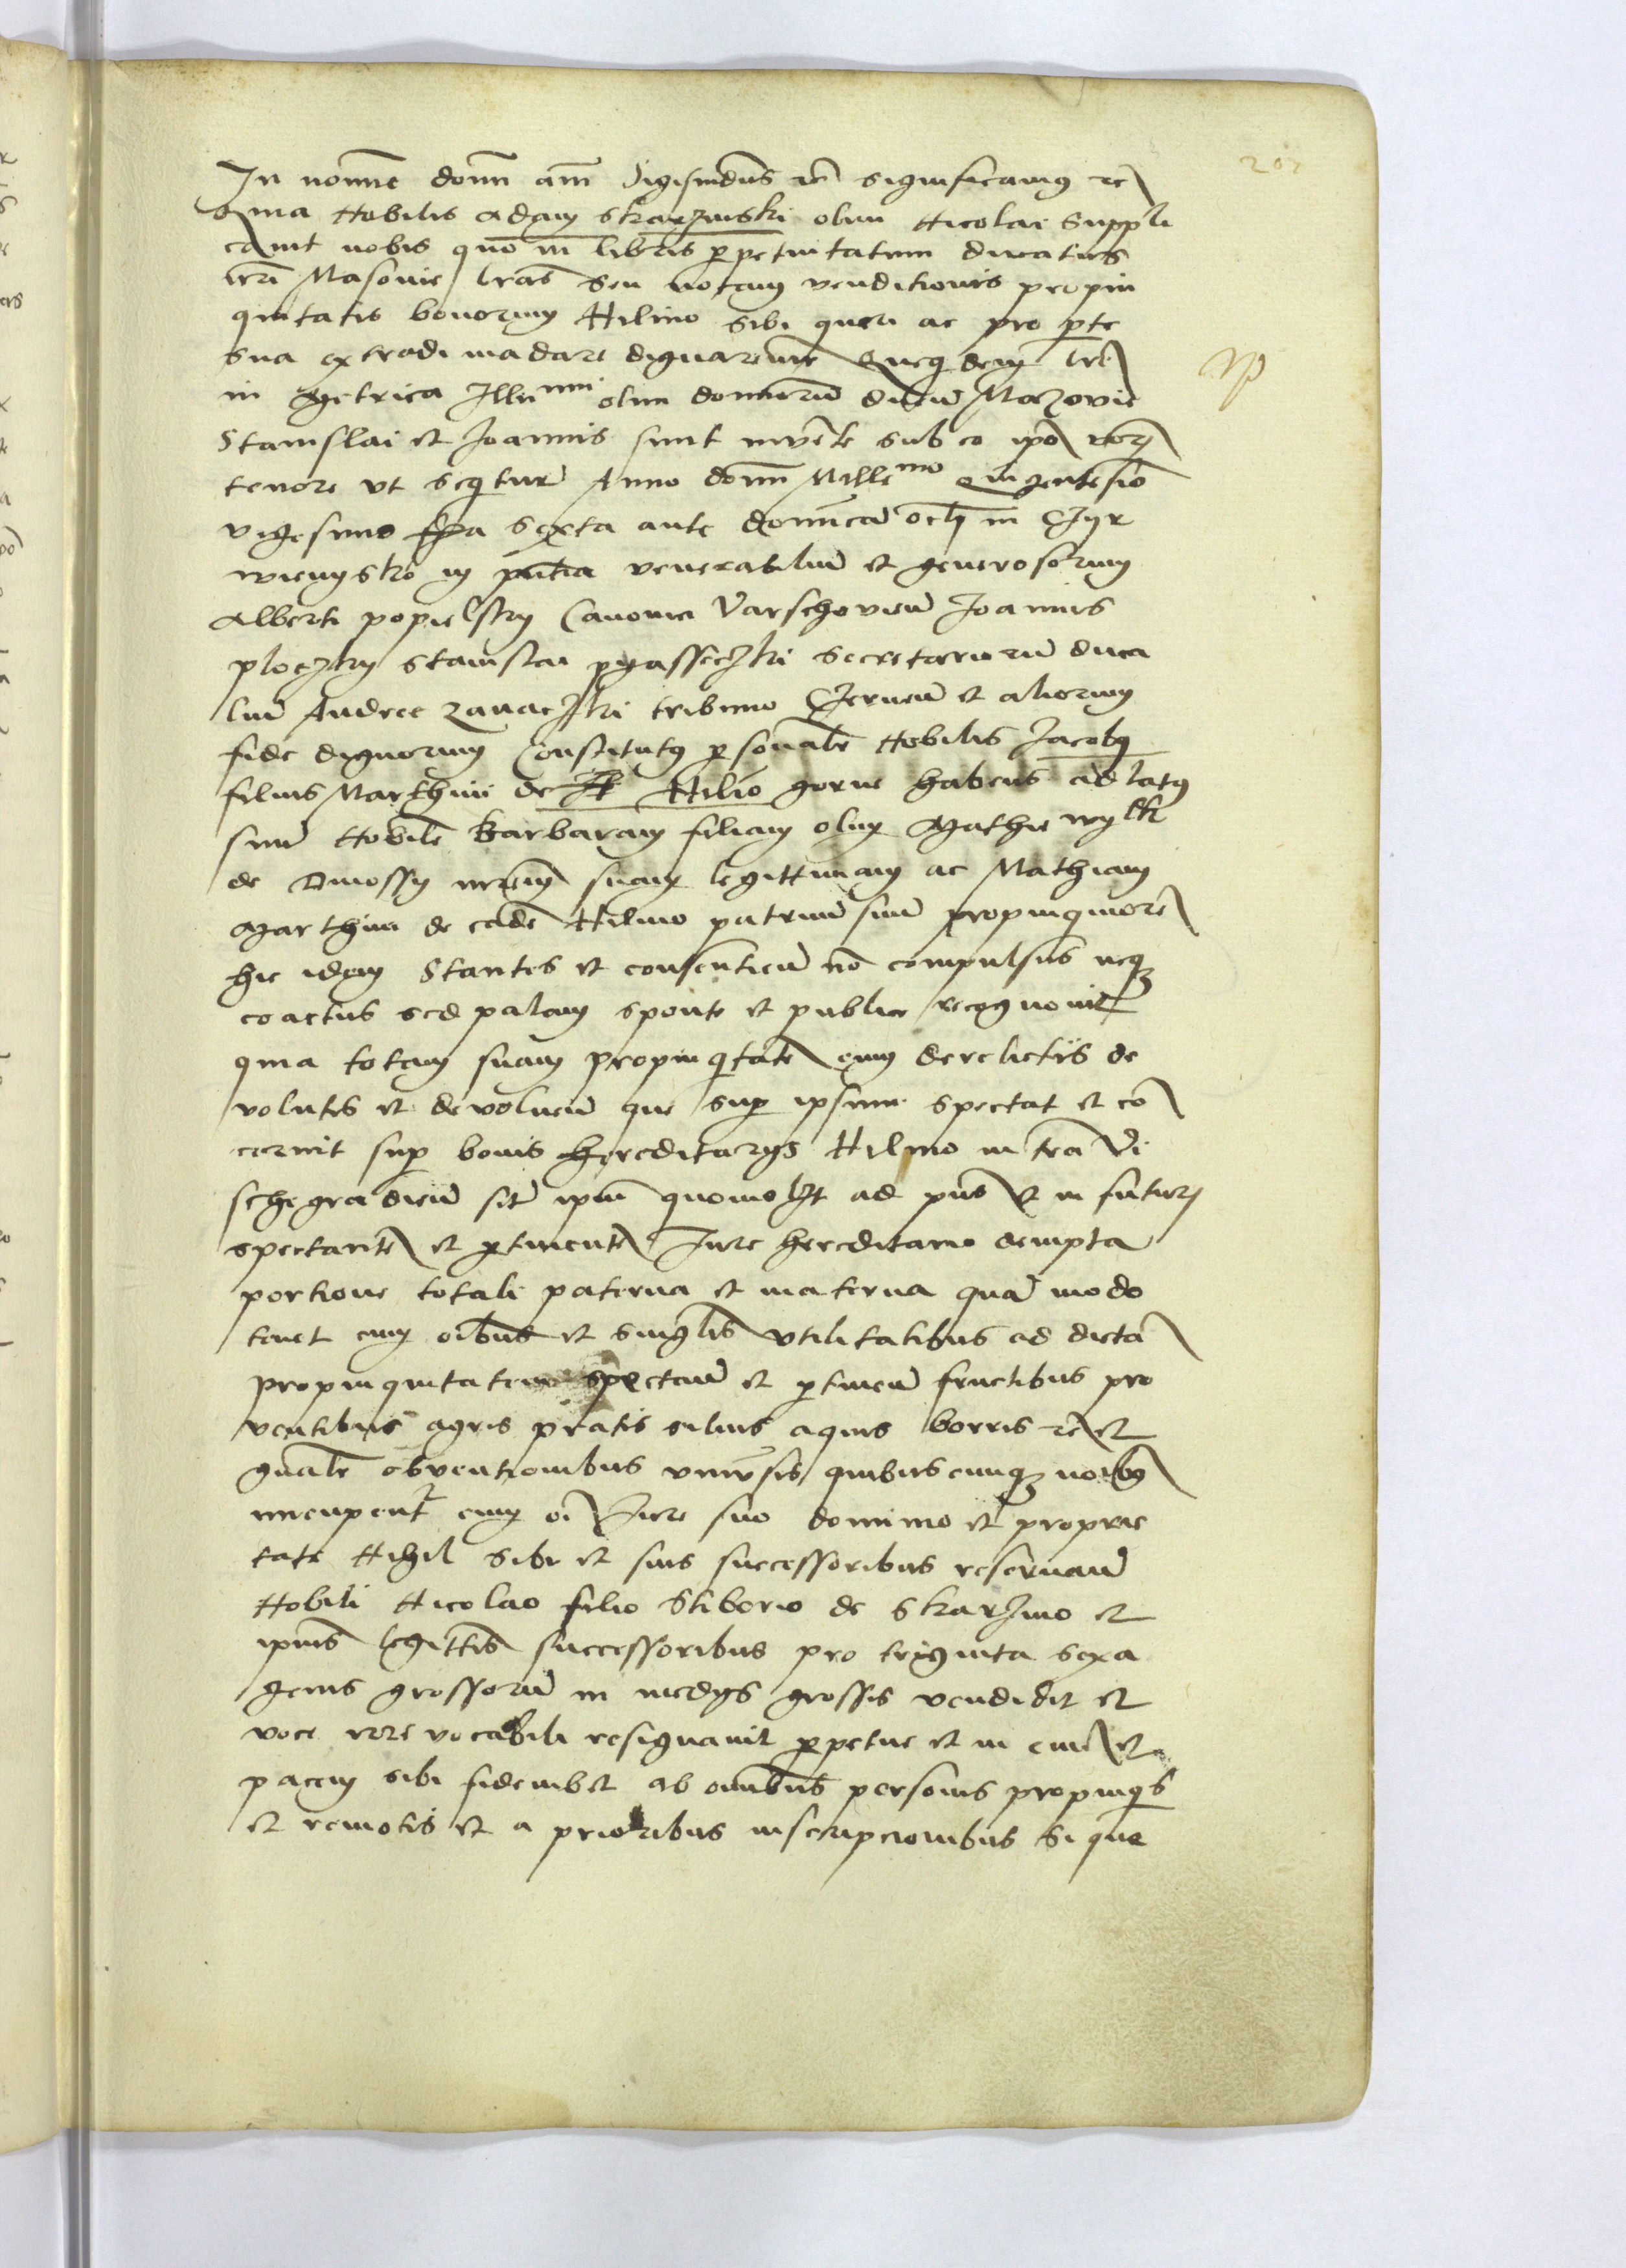 In nomine domi am Sigismdus rc significamus rc
Quia Nobilis Adam Skarzinski olim Nicolai suppli
cavit nobis quo in libris perpetuitatum ducatus
nri Masovie lras seu notam venditionis propin
quitatis bonorum Kilino sibi queri ac pro parte
sua extradi madare dignaremur Queqdem lre
in metrica Illu mi olim dominorum ducum Mazovie
Stanislai et Joannis sunt invente sub eo ipo verboru
tenore ut sequitur Anno domi Mille mo quingentesimo
vigesimo fria sexta ante dominicam oculi in Czyr
wiensko in pntia venerabilium et generosorum
Alberti popielsky Canonici Varschovien Joannis
ploczky Stanislai pyasseczki secretariorum duca
lium Andree zavaczki tribuno Czernen et aliorum
fide dignorum Constitutus personale Nobilis Jacobus
filius Marthini de Kilino gorne habens ad latus
suum Nobile Barbaram filiam olim Mathie wylk
de Dmossy uxorem suam legittimam ac Mathiam
Marthini de eade Kilino patruum suum propinquiore
hic idem stantes et consentien no compulsus neque
coactus sed palam sponte et publice recognovit
quia totam suam propinquitate cum derelictis de
volutis et devoluen que super ipsum spectat et co
cernit super bonis hereditariis Kilino in tra Vi
schegradien sit ipm quomolibet ad pns et in futurum
spectante et pertinente Jure hereditario dempta
portione totali paterna et materna qua modo
tenet cum oibus et singulis utilitatibus ad dicta
propinquitatem spectan et pertinen fructibus pro
ventibus agris pratis silvis aquis borris rc et
generale obventionibus universis quibuscunque noibus
nncupent cum oi Jure suo dominio et proprie
tate Nihil sibi et suis successoribus reservan
Nobili Nicolao filio Stiborio de Skarzino et
ipius legittis successoribus pro triginta sexa
genis grossorum in mediis grossis vendidit et
voce irrevocabili resignavit perpetue et in evum et
pacem sibi fideiubet ab omnibus personis propinquis
et remotis et a prioribus inscripcionibus si que